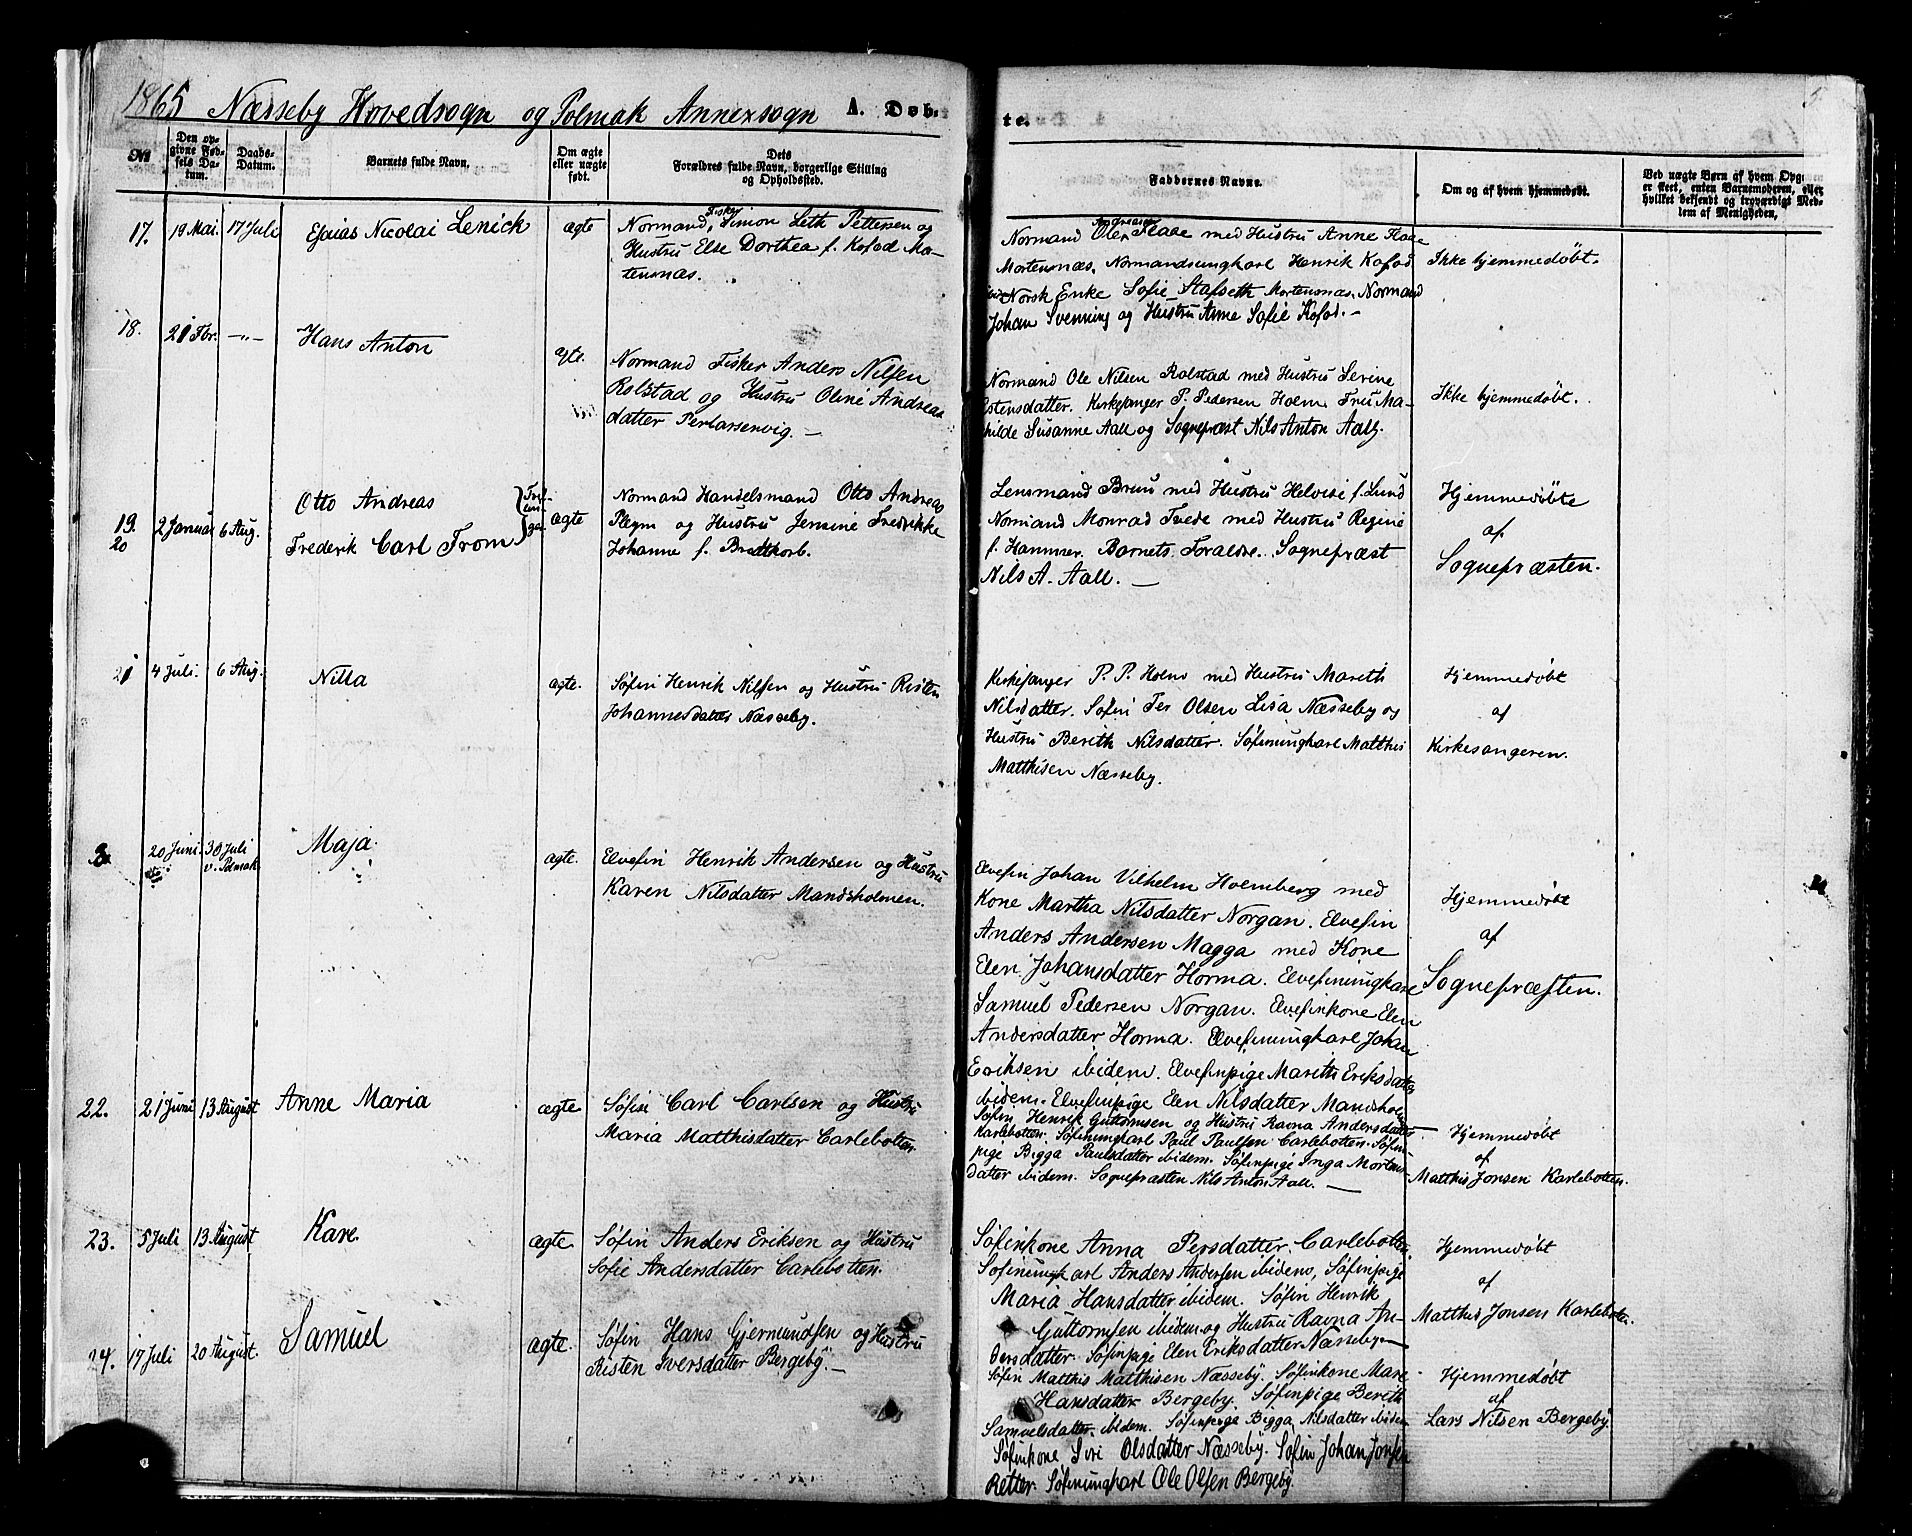 1865 Næsseby Hovedsogn og Polmak Annexsogn A. Døbte.
5.
No
Den opgivne Fødsels Datum.
Daabs-Datum.
Barnets fulde Navn.
Om ægte eller uægte født.
Dets Forældres fulde Navn, borgerlige Stilling og Opholdssted.
Faddernes Navne.
Om og af hvem hjemmedøbt.
Ved uægte Børn af hvem Opgaven er skeet, enten Barnemoderen, eller hvilket bekjendt og troværdigt Medlem af Menigheden.
17. 19 Mai. 17 Juli Esaias Nicolai Lenick ægte
Normand, Fisker Simon Leth Pettersen og
Hustru Else Dorthea f. Kofod Mo-
tensnæs.
Normand Ole Andreasen Flaae med Hustru Anne Flaae
Mortensnæs. Normandsungkarl Henrik Kofod
Norsk Enke Sofie Stafseth Mortensnæs. Normand
Johan Svenning og Hustru Anne Sofie Kofod. —
Ikke hjemmedøbt.
18. 21 Fbr. —"— Hans Anton ægte.
Normand Fisker Anders Nilsen
Rolstad og Hustru Oline Andreas
datter Perlarsenvig. —
Normand Ole Nilsen Rolstad med Hustru Serine
Estensdatter. Kirkesanger P. Pedersen Holm. Fru Ma-
thilde Susanne Aall og Sognepræst Nils Anton Aall.
Ikke hjemmedøbt.
19. 20 2 Januar 6 Aug.
Otto Andreas
Frederik Carl Trom
Tvil-
lin-
ge
ægte
Normand Handelsmand Otto Andreas
Plegm og Hustru Jensine Fredrikke
Johanne f. Bredtkorb.
Lensmand Bruu med Hustru Helvise f. Lund
Normand Monrad Tvede med Hustru Regine
f. Hammer. Barnets Foraldre. Sognepræst
Nils A. Aall. —
Hjemmedøbte
af
Sognepræsten.
21 4 Juli. 6 Aug. Nilla ægte.
Søfin Henrik Nilsen og Hustru Risten
Johannesdatter Næsseby.
Kirkesanger P. P. Holm med Hustru Mareth
Nilsdatter. Søfin Per Olsen Lisa Næsseby og
Hustru Bereth Nilsdatter. Søfinungkarl Matthis
Matthisen Næsseby.
Hjemmedøbt
af
Kirkesangeren.
20 Juni. 30 Juli v. Polmak Maja. ægte.
Elvefin Henrik Andersen og Hustru
Karen Nilsdatter Mandsholmen.
Elvefin Johan Vilhelm Holmberg med
Kone Martha Nilsdatter Norgan. Elvefin
Anders Andersen Magga med Kone
Elen Johansdatter Horma. Elvefinungkare
Samuel Pedersen Norgan. Elvefinkone Elen
Andersdatter Horma. Elvefinungkarl Johan
Eriksen ibidem. Elvefinpige Mareth Eriksdatter
ibidem. Elvefinpige Elen Nilsdatter Mandshol
Hjemmedøbt
af
Sognepræsten.
22. 21 Juni 13 August Anne Maria ægte
Søfin Carl Carlsen og Hustru
Maria Matthisdatter Carlebotten
Søfin Henrik Guttormsen og Hustru Ravna Andersdatter
Karlebotten. Søfinungkarl Paul Paulsen Carlebotten. Søfin-
pige Bigga Paulsdatter ibidem. Søfinpige Inga Mortens
datter ibidem. Sognepræsten Nils Anton Aall. —
Hjemmedøbt
af
Matthis Jonsen Karlebotten.
23. 5 Juli 13 August Kare ægte
Søfin Anders Eriksen og Hustru
Sofie Andersdatter Carlebotten.
Søfinkone Anna Persdatter. Carlebotten.
Søfinungkarl Anders Andersen ibidem, Søfinpige
Maria Hansdatter ibidem. Søfin Henrik
Guttormsen ibidem og Hustru Ravna An-
dersdatter. Søfinpige Elen Eriksdatter Næsseby. —
Hjemmedøbt
af
Matthis Jonsen Karlebotten.
24. 17 Juli 20 August. Samuel ægte.
Søfin Hans Gjermundsen og Hustru
Risten Iversdatter Bergeby. —
Søfin Matthis Matthisen Næsseby. Søfinkone Mare
Hansdatter Bergeby. Søfinpige Bereth
Samuelsdatter ibidem. Søfinpige Bigga Nilsdatter ibidem
Søfinkone Siri Olsdatter Næsseby. Søfin Johan Jonsen
Retter. Søfinungkarl Ole Olsen Bergeby.
Hjemmedøbt
af
Lars Nilsen Bergeby.